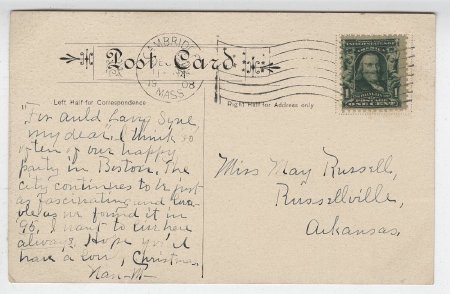 CAMBRIDGE
DEC
MASS
08
Post Card
Left Half for Correspondence
Right Half for Address only
ONE CENT
"For Auld Lang Syne,
my dear. I think so
often of our happy
party in Boston. The
city continues to be just
as fascinating and
as we found it in
'96, I want to live here
always. Hope you'll
have a Christmas.
Nan
Miss May Russell,
Russellville,
Arkansas.